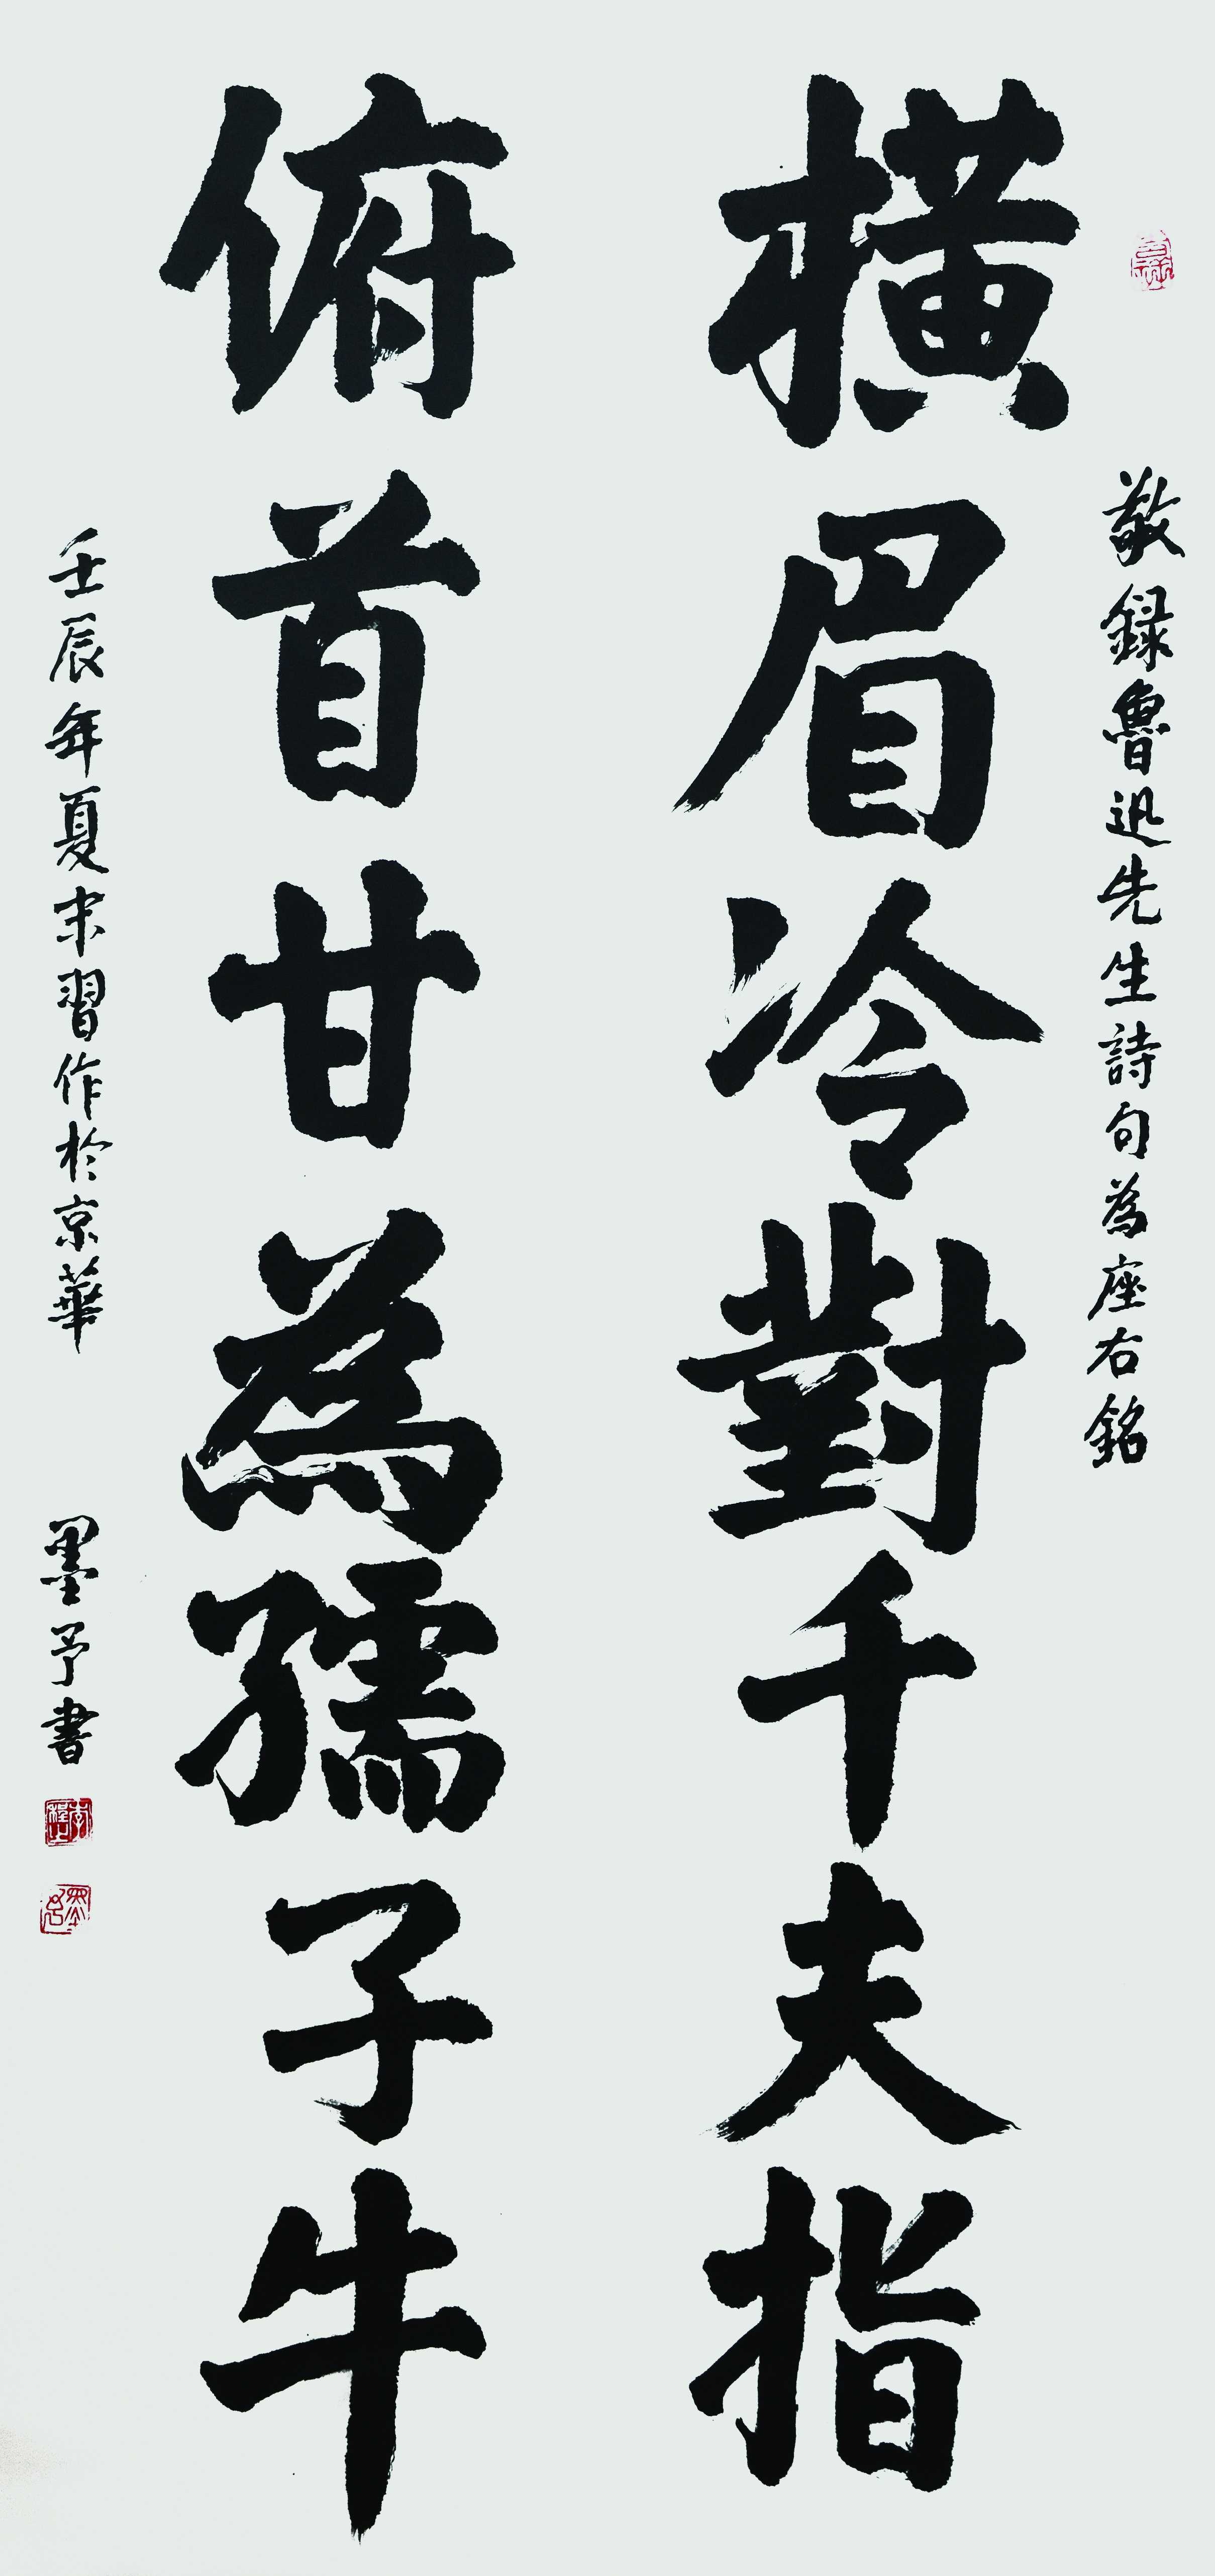 敬録魯迅先生詩句為座右銘
橫眉冷對千夫指
俯首甘為孺子牛
壬辰年夏末習作於京華
墨予書